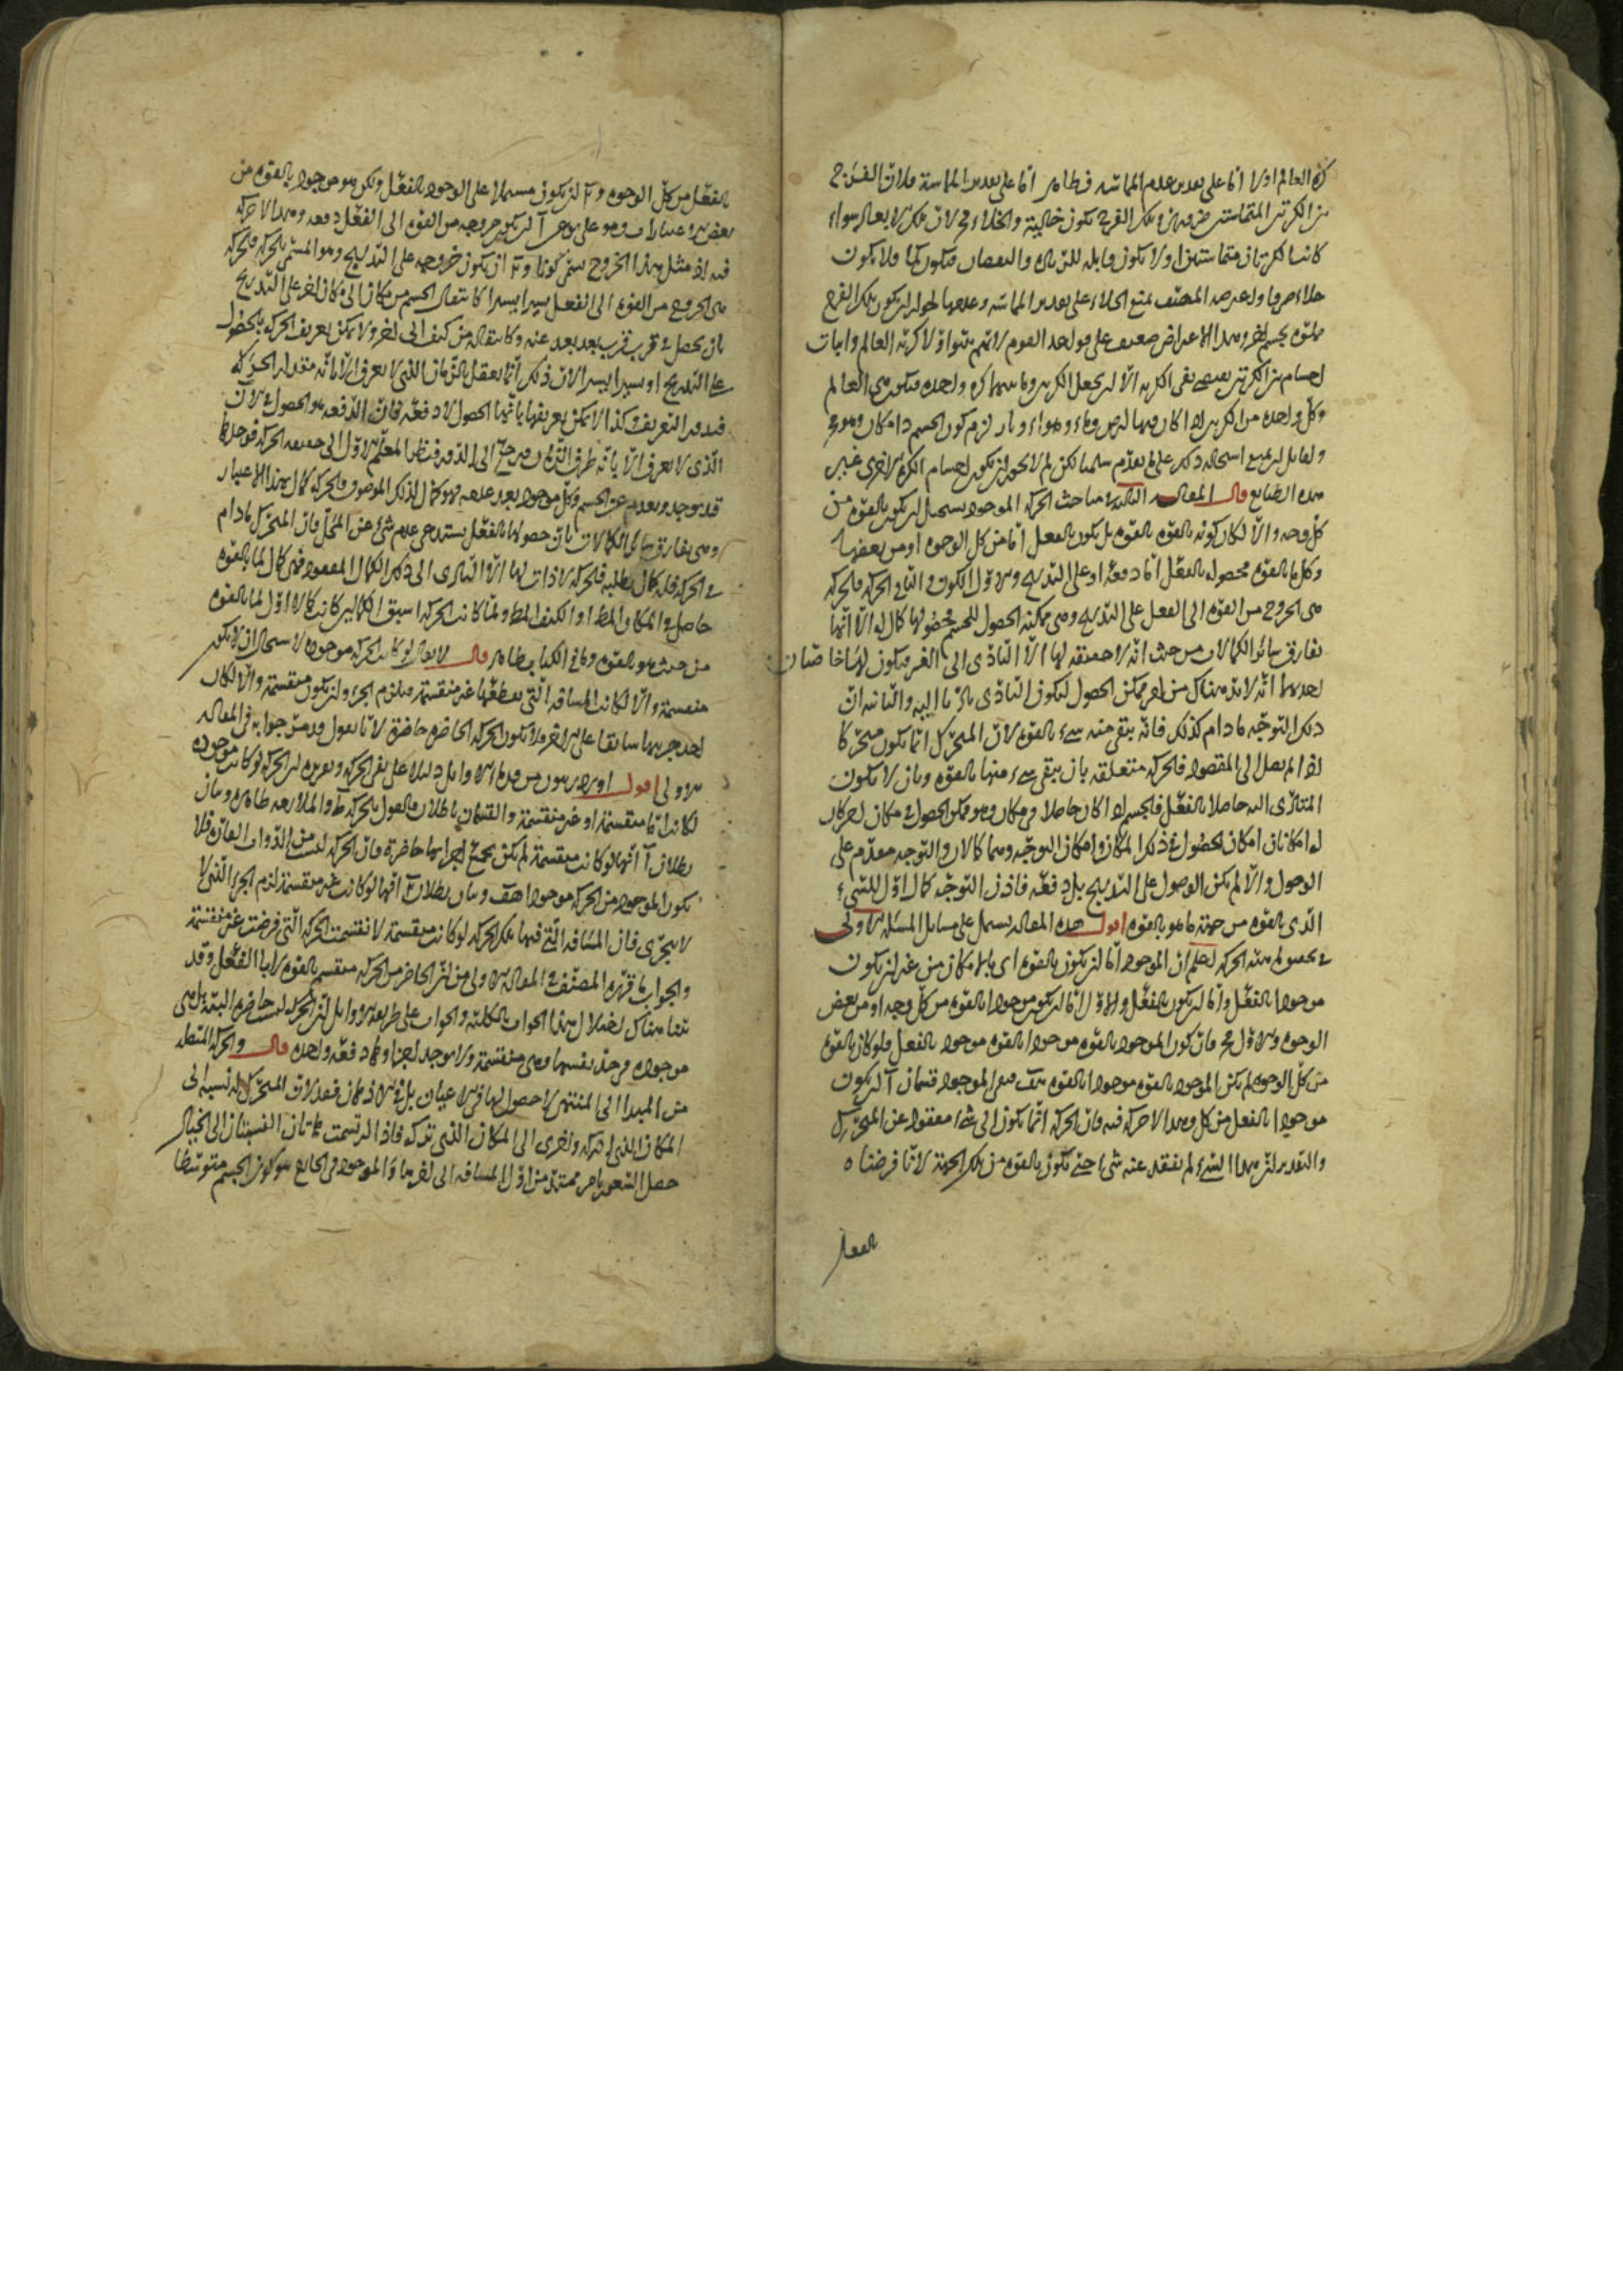 كرة العالم اولا اما على تقدير عدم المماسة فظاهر اما على تقدير المماسة فلان الفرج
بين الكرتين المتماستين ضرورية وتلك الفرج تكون خالية والخلاء مح لان تلك لا يقال سواء
كانت الكرتان متماستين او لا تكون قابلة للزيادة والنقصان فتكون كما ولا يكون
خلاء صرفا واعترض المصنف بمنع الخلاء على تقدير المماسة وعدمها لجواز ان يكون تلك الفرج
مملوة بجسم اخر وهذا الاعتراض ضعيف على قواعد القوم لانهم بينوا اولا كرية العالم واثبات
اجسام بين الكرتين يقتضي نفي الكرية الا ان يجعل الكرتين وما بينهما كرة واحدة فتكون هي العالم
وكل واحدة من الكرتين اذا كان فيها ارض وماء وهواء ونار لزم كون الجسم ذا مكان وهو مح
ولقائل ان يمنع استحالة ذلك على ما تقدم سلمنا لكن لم لا يجوز ان يكون اجسام الكرة الاخرى غير
هذه الطبايع قال المقالة الثالثة في مباحث الحركة الموجود يستحيل ان يكون بالقوة من
كل وجه والا لكان كونه بالقوة بالقوة بل يكون بالفعل اما من كل الوجوه او من بعضها
وكل ما بالقوة فحصوله بالفعل اما دفعة او على التدريج والاول الكون والثاني الحركة فالحركة
هي الخروج من القوة الى الفعل على التدريج وهي ممكنة الحصول للجسم فحصولها كمال له الا انها
تفارق سائر الكمالات من حيث انه لا حقيقة لها الا التأدي الى الغير فيكون لها خاصتان
احديهما انه لا بد هناك من امر ممكن الحصول ليكون التأدي تأديا اليه والثانية ان
ذلك التوجه ما دام كذلك فانه يبقى منه شيء بالقوة لان المتحرك انما يكون متحركا
اذا لم يصل الى المقصود فالحركة متعلقة بان يبقى شيء منها بالقوة وبان لا يكون
المتأدى اليه حاصلا بالفعل فالجسم اذا كان حاصلا في مكان وهو ممكن الحصول في مكان اخر كان
له امكانان امكان الحصول في ذلك المكان وامكان التوجه وهما كمالان والتوجه مقدم على
الوصول والا لم يكن الوصول على التدريج بل دفعة فاذن التوجه كمال اول للشيء
الذي بالقوة من جهة ما هو بالقوة اقول هذه المقالة يشتمل على مسايل المسئلة الاولى
في تحصيل مهية الحركة اعلم ان الموجود اما ان يكون بالقوة اي بامكان من غير ان يكون
موجودا بالفعل واما ان يكون بالفعل والاول اما ان يكون موجودا بالقوة من كل وجه او من بعض
الوجوه والاول مح فان كون الموجود بالقوة موجودا بالقوة موجود بالفعل فلو كان بالقوة
من كل الوجوه لم يكن الموجود بالقوة موجودا بالقوة هف فبقي الموجود قسمان آ ان يكون
موجودا بالفعل من كل وجه وهذا لا حركة فيه فان الحركة انما يكون الى شيء مفقود عن المتحرك
والتقدير ان هذا الشيء لم يفقد عنه شيء حتى يكون بالقوة من تلك الجهة لانا فرضناه
بالفعل
بالفعل من كل الوجوه و ب ان يكون مشتملا على الوجود بالفعل ولكن هو موجود بالقوة من
فيه اذ مثل هذا الخروج يسمى كونا و ب ان يكون خروجه على التدريج وهو المسمى بالحركة فالحركة
هي الخروج من القوة الى الفعل يسيرا يسيرا كانتقال الجسم من مكان الى مكان اخر على التدريج
بان يحصل في قرب قرب بعد بعد عنه وكانتقاله من كيف الى اخر ولا يمكن تعريف الحركة بالحصول
على التدريج او يسيرا يسيرا لان ذلك انما يعقل بالزمان الذي لا يعرف الا بانه مقدار الحركة
فيدور التعريف وكذا لا يمكن تعريفها بانها الحصول لا دفعة فان الدفعة هو الحصول في الآن
الذي لا يعرف الا بانه طرف الزمان فيرجع الى الدور فنظر المعلم الاول الى حقيقة الحركة فوجدها
قد يوجد وبعدم عن الجسم وكل موجود بعد عدمه فهو كمال لذلك الموصوف فالحركة كمال بهذا الاعتبار
وهي يفارق سائر الكمالات بان حصولها بالفعل يستدعي عدم شيء عن المحل فان المتحرك ما دام
في الحركة فله كمال يطلبه فالحركة لا ذات لها الا التأدي الى ذلك الكمال المفقود فهي كمال لما بالقوة
حاصل والمكان المط او الكيف المط ولما كانت الحركة اسبق الكمالين كانت كمالا اول لما بالقوة
من حيث هو بالقوة وما في الكتاب ظاهر قال لا يقال لو كانت الحركة موجودة لاستحال ان لا يكون
منقسمة والا لكانت المسافة التي يقطعها غير منقسمة فيلزم الجزء وان يكون منقسمة والا لكان
احد جزئيها سابقا على الاخر فلا يكون الحركة الحاضرة حاضرة لانا نقول قد مر جوابه في المقالة
الاولى اقول اورد زينون من قدماء الاوائل دليلا على نفي الحركة وتقريره ان الحركة لو كانت موجودة
لكانت اما منقسمة او غير منقسمة والقسمان باطلان فالقول بالحركة بط والملازمة ظاهرة وبيان
بطلان آ انها لو كانت منقسمة لم يكن جميع اجزائها حاضرة فان الحركة ليست من الذوات القارة فلا
يكون الموجود من الحركة موجودا هف وبيان بطلان ب انها لو كانت غير منقسمة لزم الجزء الذي لا
لا يتجزى فان المسافة التي فيها تلك الحركة لو كانت منقسمة لانقسمت الحركة التي فرضت غير منقسمة
والجواب ما قرره المصنف في المقالة الاولى من ان الحاضر من الحركة منقسم بالقوة لا بالفعل وقد
بينا هناك اختلال هذا الجواب بالكلية والجواب على طريقة الاوائل ان الحركة ليست حاضرة البتة بل هي
موجودة في حد نفسها وهي منقسمة ولا يوجد اجزاؤها دفعة واحدة قال والحركة المتصلة
من المبدا الى المنتهى لا حصول لها في الاعيان بل في الاذهان فقط لان المتحرك له نسبة الى
المكان الذي تركه واخرى الى المكان الذي يدركه فاذا ارتسمت هاتان النسبتان الى الخيال
حصل الشعور بامر ممتد من اول المسافة الى اخرها والموجود في الخارج هو كون الجسم متوسطا